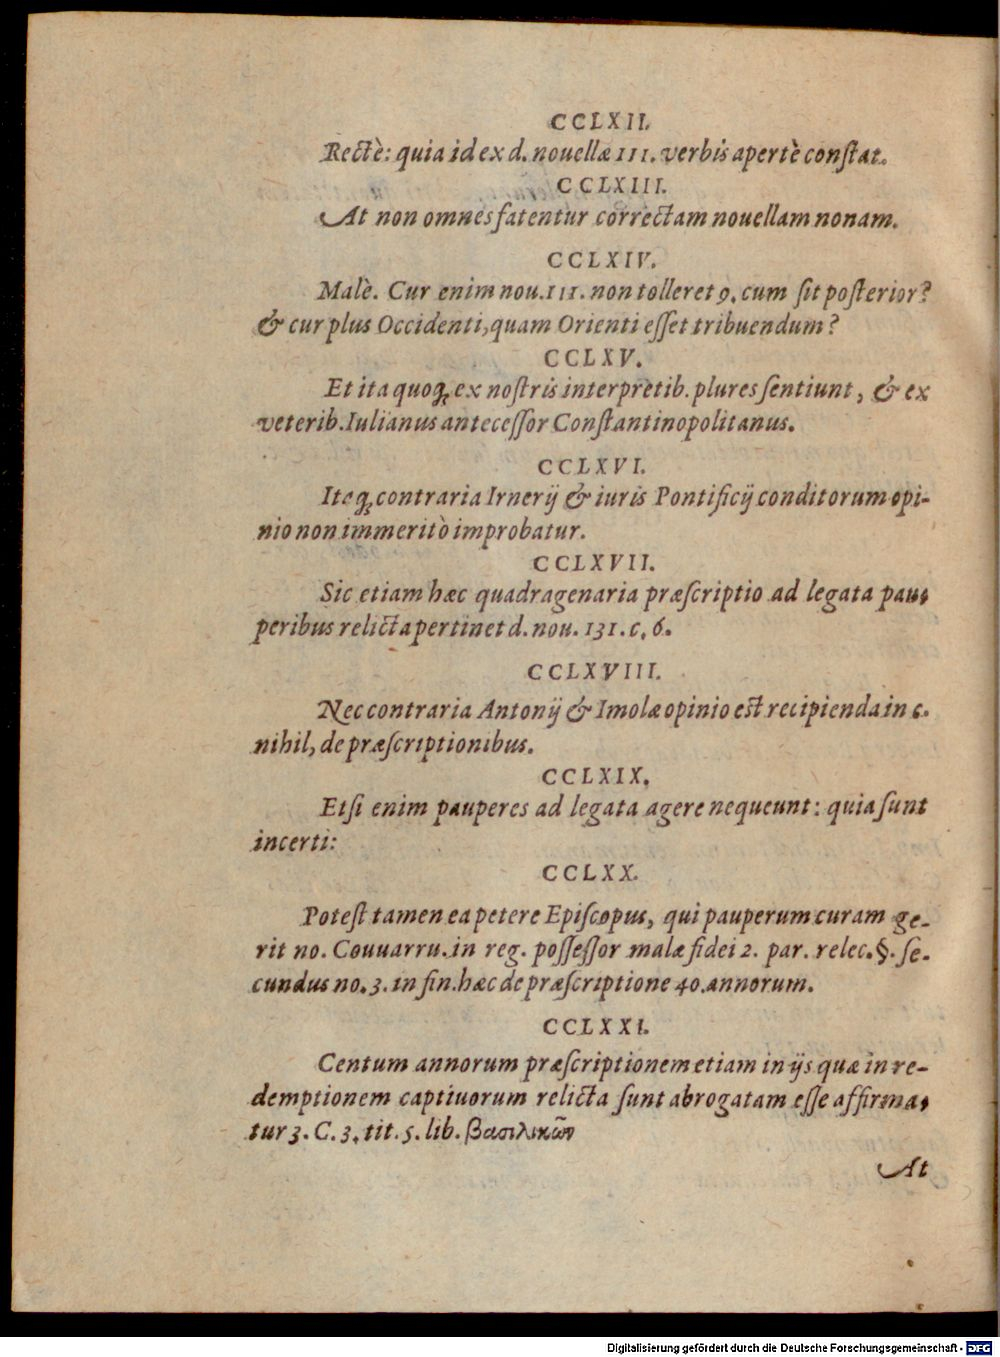 CCLXII.
Rectè: quia id ex d. nouellæ 111. verbis apertè conſtat.
CCLXIII.
At non omnes fatentur correctam nouellam nonam.
CCLXIV.
Malè. Cur enim nou. 111. non tolleret 9. cum ſit poſterior?
& cur plus Occidenti, quam Orienti eſſet tribuendum?
CCLXV.
Et ita quoq; ex noſtris interpretib. plures ſentiunt, & ex
veterib. Iulianus anteceſſor Conſtantinopolitanus.
CCLXVI.
Itaq; contraria Irnerij & iuris Pontificij conditorum opi-
nio non immeritò improbatur.
CCLXVII.
Sic etiam hæc quadragenaria præſcriptio ad legata pau-
peribus relicta pertinet d. nou. 131. c. 6.
CCLXVIII.
Nec contraria Antonij & Imolæ opinio est recipienda in c.
nihil, de præſcriptionibus.
CCLXIX.
Etſi enim pauperes ad legata agere nequeunt: quia ſunt
incerti:
CCLXX.
Poteſt tamen ea petere Epiſcopus, qui pauperum curam ge-
rit no. Couuarru. in reg. poſſeſſor malæ fidei 2. par. relec. §. ſe-
cundus no. 3. in fin. hæc de præſcriptione 40. annorum.
CCLXXI.
Centum annorum præſcriptionem etiam in ijs quæ in re-
demptionem captiuorum relicta ſunt abrogatam eſſe affirma-
tur 3. C. 3. tit. 5. lib. βασιλικῶν
At
Digitalisierung gefördert durch die Deutsche Forschungsgemeinschaft - DFG